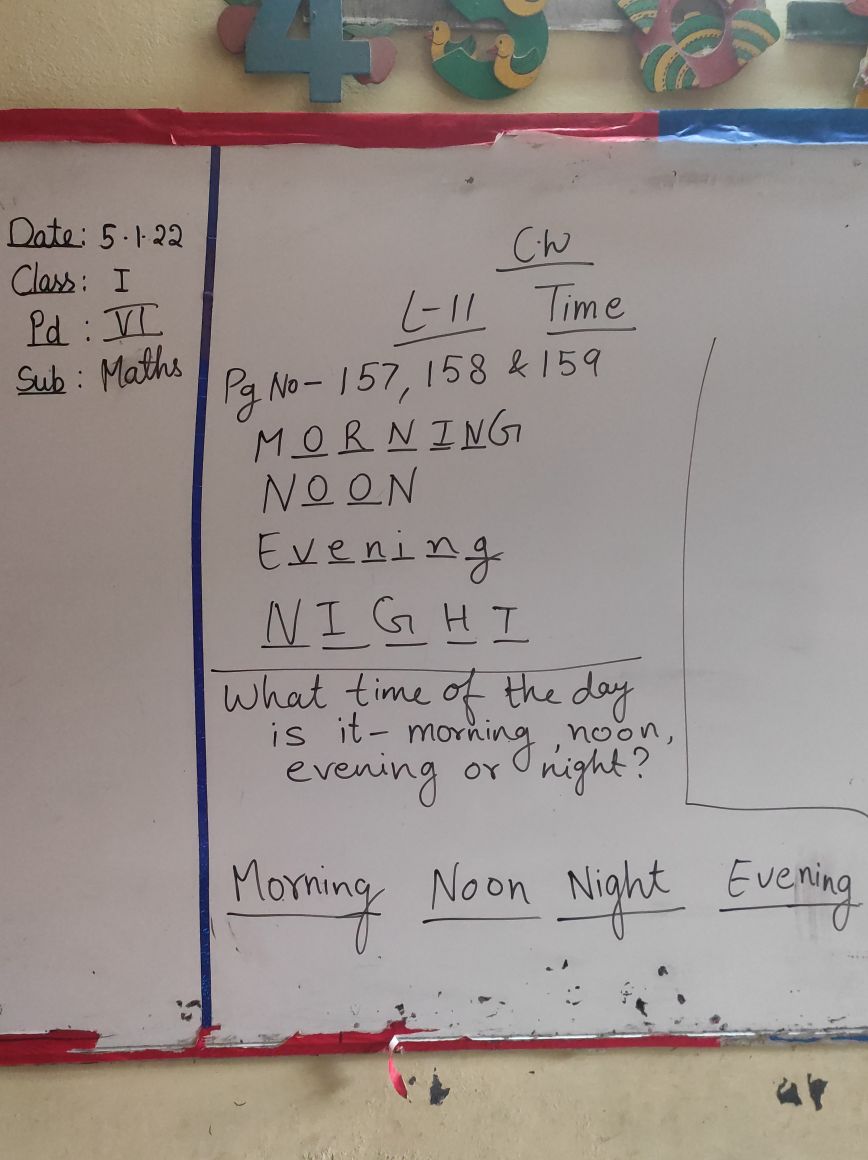 4 3 8
Date: 5.1.22
Class: I
Pd : VI
Sub : Maths
C.W
L-11 Time
Pg No- 157, 158 & 159
MORNING
NOON
Evening
NIGHT
What time of the day
is it- morning, noon,
evening or night?
Morning Noon Night Evening